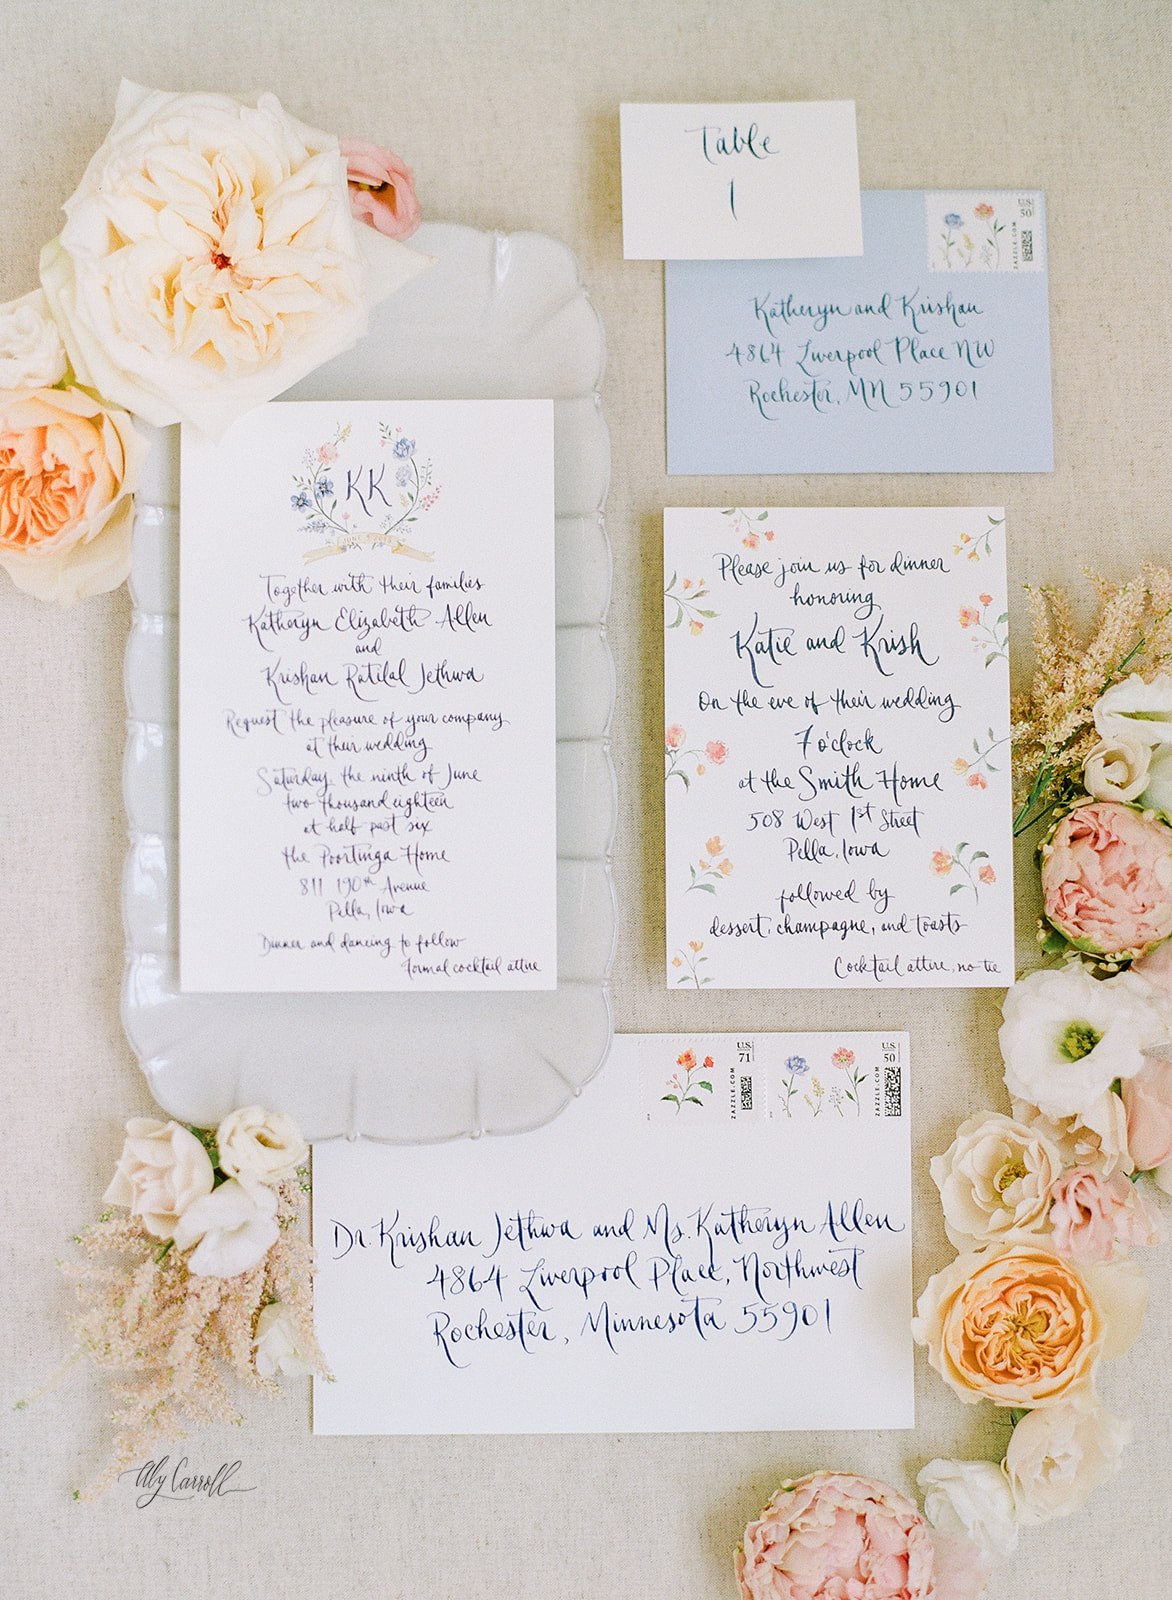 Table
1
U.S.
50
ZAZZLE.COM
Katheryn and Krishan
4864 Liverpool Place NW
Rochester, MN 55901
KK
Together with their families
Katheryn Elizabeth Allen
and
Krishan Ratilal Jethwa
Request the pleasure of your company
at their wedding
Saturday, the ninth of June
two thousand eighteen
at half past six
the Poortinga Home
811 190th Avenue
Pella, Iowa
Dinner and dancing to follow
formal cocktail attire
Please join us for dinner
honoring
Katie and Krish
On the eve of their wedding
7 o'clock
at the Smith Home
508 West 1st Street
Pella, Iowa
followed by
dessert, champagne, and toasts
Cocktail attire, no tie
U.S.
71
ZAZZLE.COM
U.S.
50
ZAZZLE.COM
Dr. Krishan Jethwa and Ms. Katheryn Allen
4864 Liverpool Place, Northwest
Rochester, Minnesota 55901
Aly Carroll